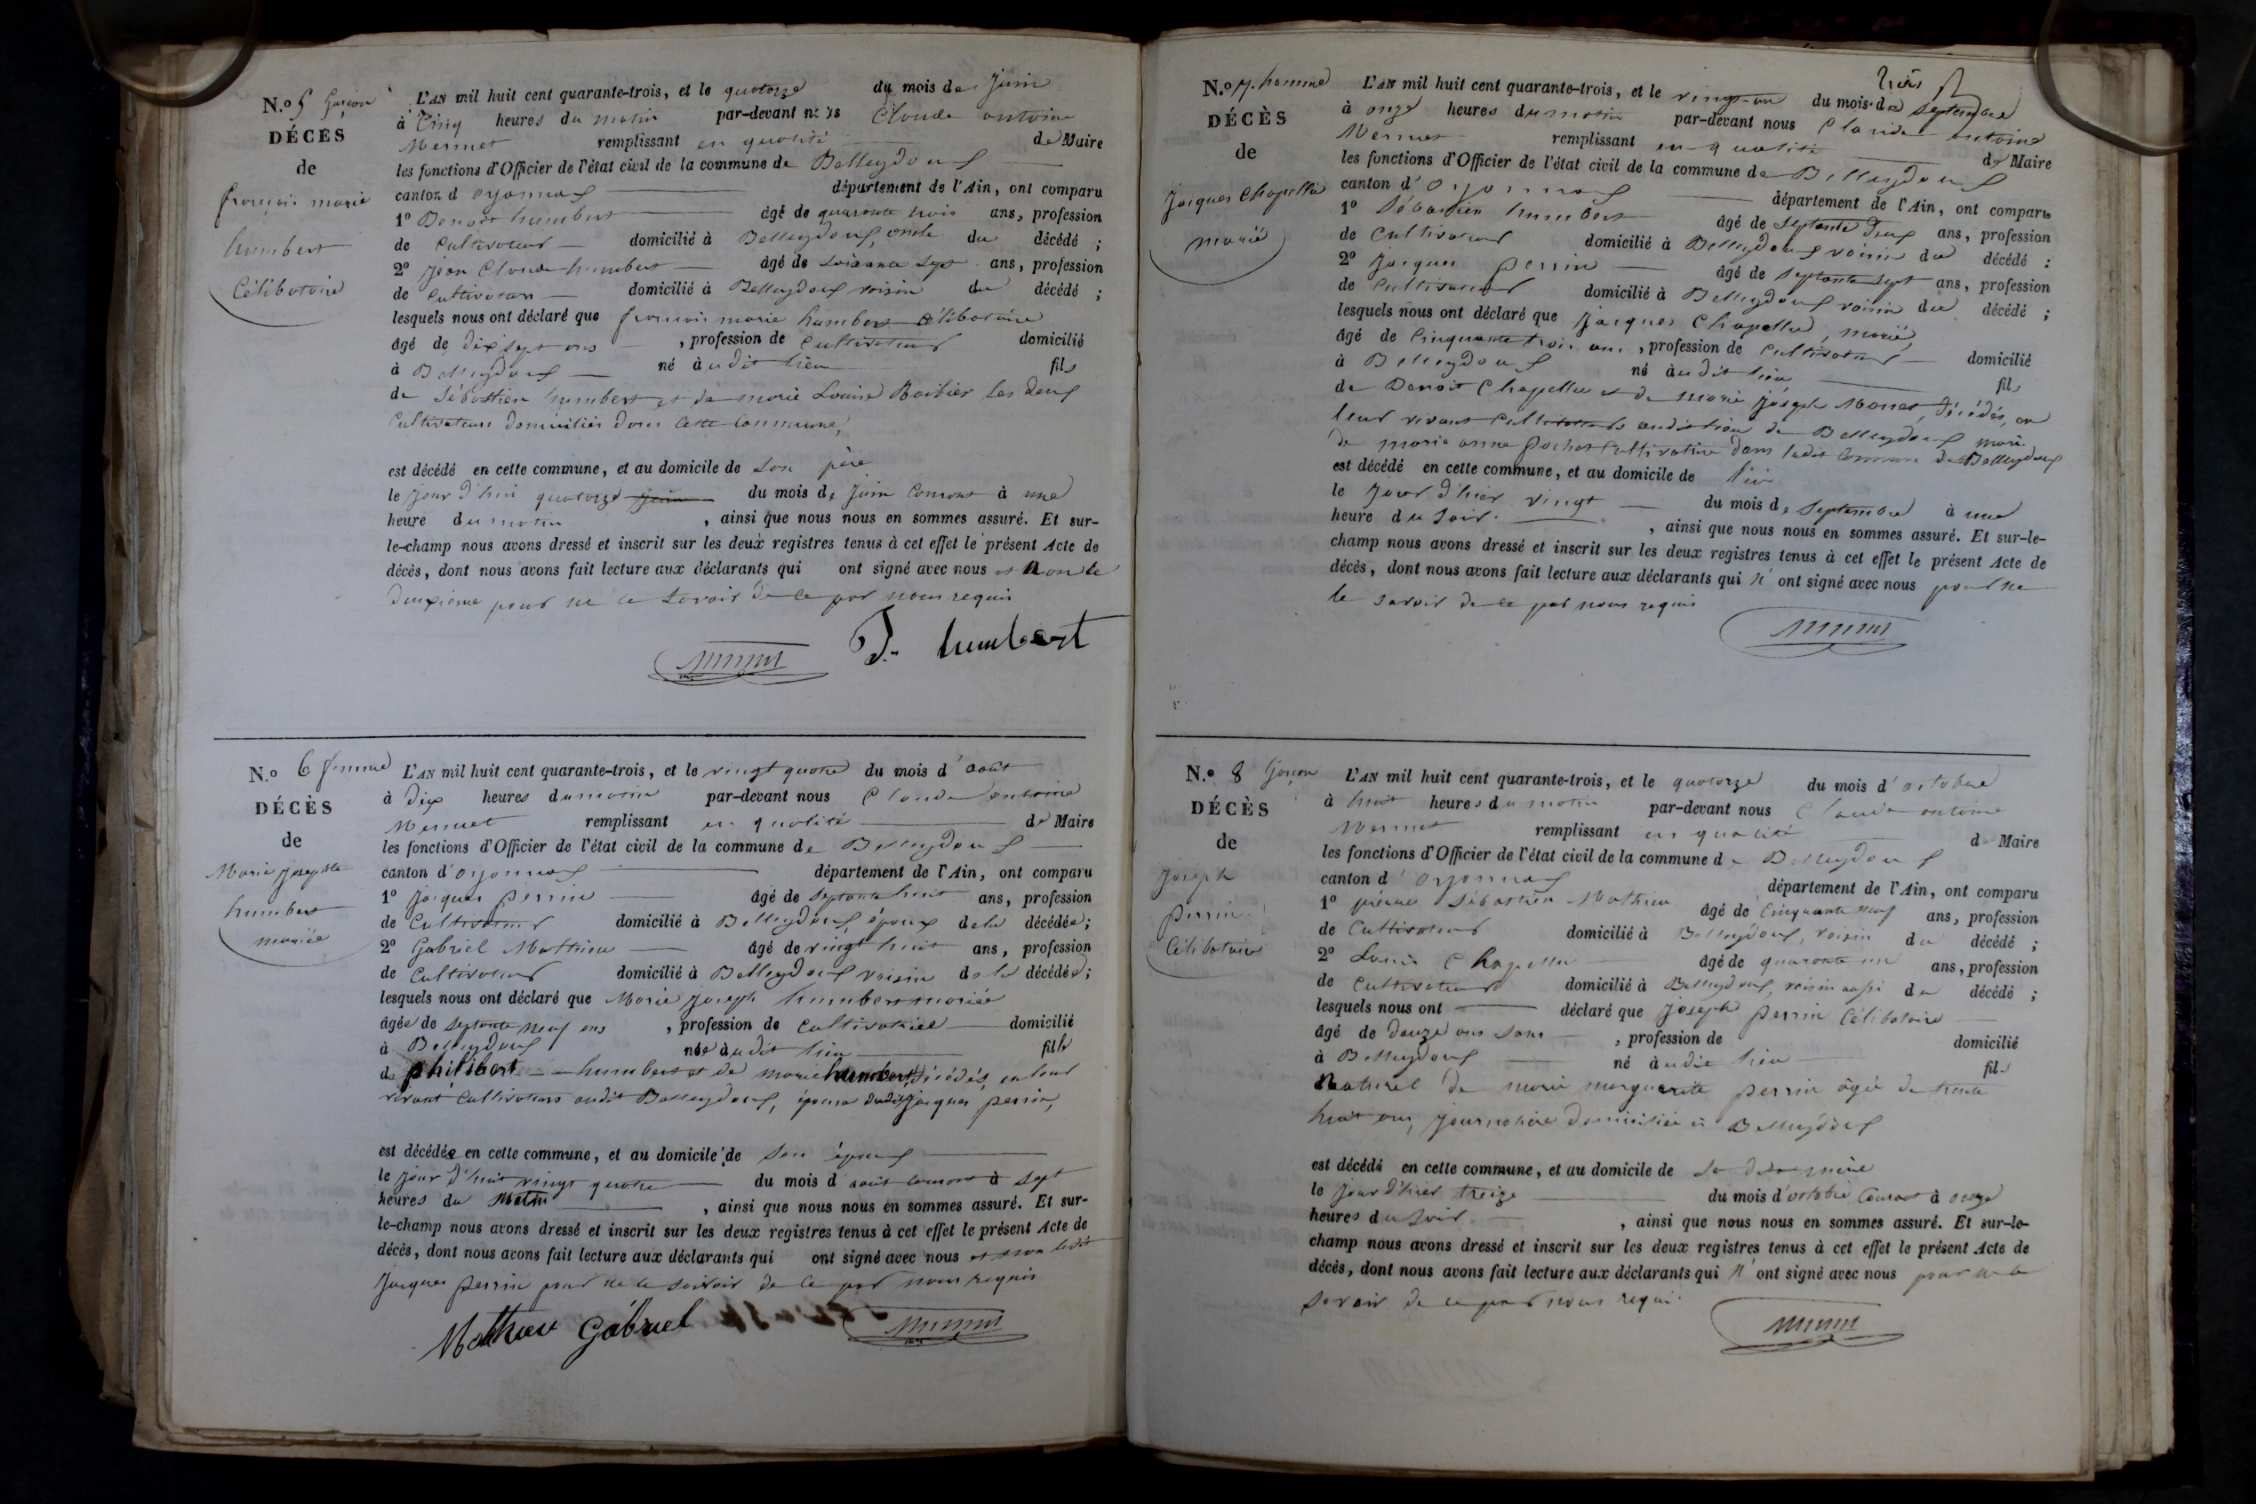 N.o 5 garçon
DÉCÈS
de
françois marie
humbert
Célibataire
L'AN mil huit cent quarante-trois, et le quatorze du mois de Juin
à Cinq heures du matin par-devant nous Claude antoine
Mermet remplissant en qualité de Maire
les fonctions d'Officier de l'état civil de la commune de Belleydoux
canton d'oyonnax département de l'Ain, ont comparu
1o Benoit humbert âgé de quarante trois ans, profession
de Cultivateur domicilié à Belleydoux, oncle du décédé ;
2o Jean Claude humbert âgé de soixante sept ans, profession
de Cultivateur domicilié à Belleydoux voisin du décédé ;
lesquels nous ont déclaré que françois marie humbert célibataire
âgé de dix sept ans , profession de Cultivateur domicilié
à Belleydoux né audit lieu fils
de Sébastien humbert et de marie Louise Barbier les deux
Cultivateurs domiciliés dans cette Commune,
est décédé en cette commune, et au domicile de son père
le jour d'hui quatorze juin du mois de Juin Courant à une
heure du matin , ainsi que nous nous en sommes assuré. Et sur-
le-champ nous avons dressé et inscrit sur les deux registres tenus à cet effet le présent Acte de
décès, dont nous avons fait lecture aux déclarants qui ont signé avec nous et non le
deuxieme pour ne le savoir de ce par nous requis
Mermet humbert
N.o 6 femme
DÉCÈS
de
Marie Josephte
humbert
mariée
L'AN mil huit cent quarante-trois, et le vingt quatre du mois d'août
à dix heures du matin par-devant nous Claude antoine
Mermet remplissant en qualité de Maire
les fonctions d'Officier de l'état civil de la commune de Belleydoux
canton d'oyonnax département de l'Ain, ont comparu
1o Jacques perrin âgé de septante huit ans, profession
de Cultivateur domicilié à Belleydoux, époux de la décédée ;
2o Gabriel Mathieu âgé de vingt huit ans, profession
de Cultivateur domicilié à Belleydoux voisin de la décédée ;
lesquels nous ont déclaré que Marie Joseph humbert mariée
âgée de septante neuf ans , profession de cultivatrice domicilié
à Belleydoux née audit lieu fille
de philibert humbert et de marie humbert, décédés, en leur
vivant Cultivateurs audit Belleydoux, épouse dudit jacques perrin,
est décédée en cette commune, et au domicile de son époux
le jour d'hui vingt quatre du mois d'août courant à sept
heures du Matin , ainsi que nous nous en sommes assuré. Et sur-
le-champ nous avons dressé et inscrit sur les deux registres tenus à cet effet le présent Acte de
décès, dont nous avons fait lecture aux déclarants qui ont signé avec nous et non ledit
Jacques perrin pour ne le savoir de ce par nous requis
Mathieu Gabriel Mermet
N.o 7. homme
DÉCÈS
de
Jacques Chapellu
marié
L'AN mil huit cent quarante-trois, et le vingt-un du mois de septembre
à onze heures du matin par-devant nous Claude antoine
Mermet remplissant en qualité de Maire
les fonctions d'Officier de l'état civil de la commune de Belleydoux
canton d'oyonnax département de l'Ain, ont comparu
1o Sébastien humbert âgé de septante deux ans, profession
de Cultivateur domicilié à Belleydoux voisin du décédé :
2o Jacques perrin âgé de septante sept ans, profession
de Cultivateur domicilié à Belleydoux voisin du décédé ;
lesquels nous ont déclaré que Jacques Chapellu, marié,
âgé de Cinquante trois ans , profession de Cultivateur domicilié
à Belleydoux né audit lieu fils
de Benoit Chapellu et de Marie Joseph décédés, en
leur vivant Cultivateurs audit lieu de Belleydoux mari
de marie anne pochet Cultivatrice dans ladite Commune de Belleydoux
est décédé en cette commune, et au domicile de lui
le jour d'hier vingt du mois de septembre à une
heure du soir. , ainsi que nous nous en sommes assuré. Et sur-le-
champ nous avons dressé et inscrit sur les deux registres tenus à cet effet le présent Acte de
décès, dont nous avons fait lecture aux déclarants qui n'ont signé avec nous pour ne
le savoir de ce par nous requis
Mermet
N.o 8 garçon
DÉCÈS
de
Joseph
perrin
Célibataire
L'AN mil huit cent quarante-trois, et le quatorze du mois d'octobre
à huit heures du matin par-devant nous Claude antoine
Mermet remplissant en qualité de Maire
les fonctions d'Officier de l'état civil de la commune de Belleydoux
canton d'oyonnax département de l'Ain, ont comparu
1o pierre Sébastien Mathieu âgé de Cinquante neuf ans, profession
de Cultivateur domicilié à Belleydoux, voisin du décédé ;
2o Louis Chapellu âgé de quarante un ans, profession
de Cultivateur domicilié à Belleydoux, voisin aussi du décédé ;
lesquels nous ont déclaré que Joseph perrin Célibataire
âgé de douze ans sans , profession de domicilié
à Belleydoux né audit lieu fils
Naturel de marie marguerite perrin âgée de trente
huit ans, journalière domiciliée à Belleydoux
est décédé en cette commune, et au domicile de sa dite mère
le jour d'hier treize du mois d'octobre Courant à onze
heures du soir. , ainsi que nous nous en sommes assuré. Et sur-le-
champ nous avons dressé et inscrit sur les deux registres tenus à cet effet le présent Acte de
décès, dont nous avons fait lecture aux déclarants qui n'ont signé avec nous pour ne le
savoir de ce par nous requis
Mermet